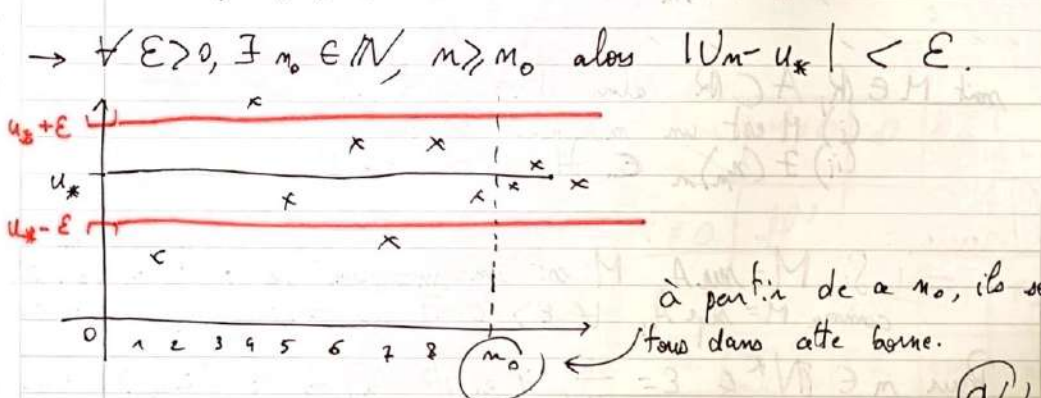 → ∀ ε>0, ∃ n₀ ∈ ℕ, n⩾n₀ alors |Un - u*| < ε.
u* + ε
u*
u* - ε
0 1 2 3 4 5 6 7 8 n₀
à partir de ce n₀, ils se
tous dans cette borne.